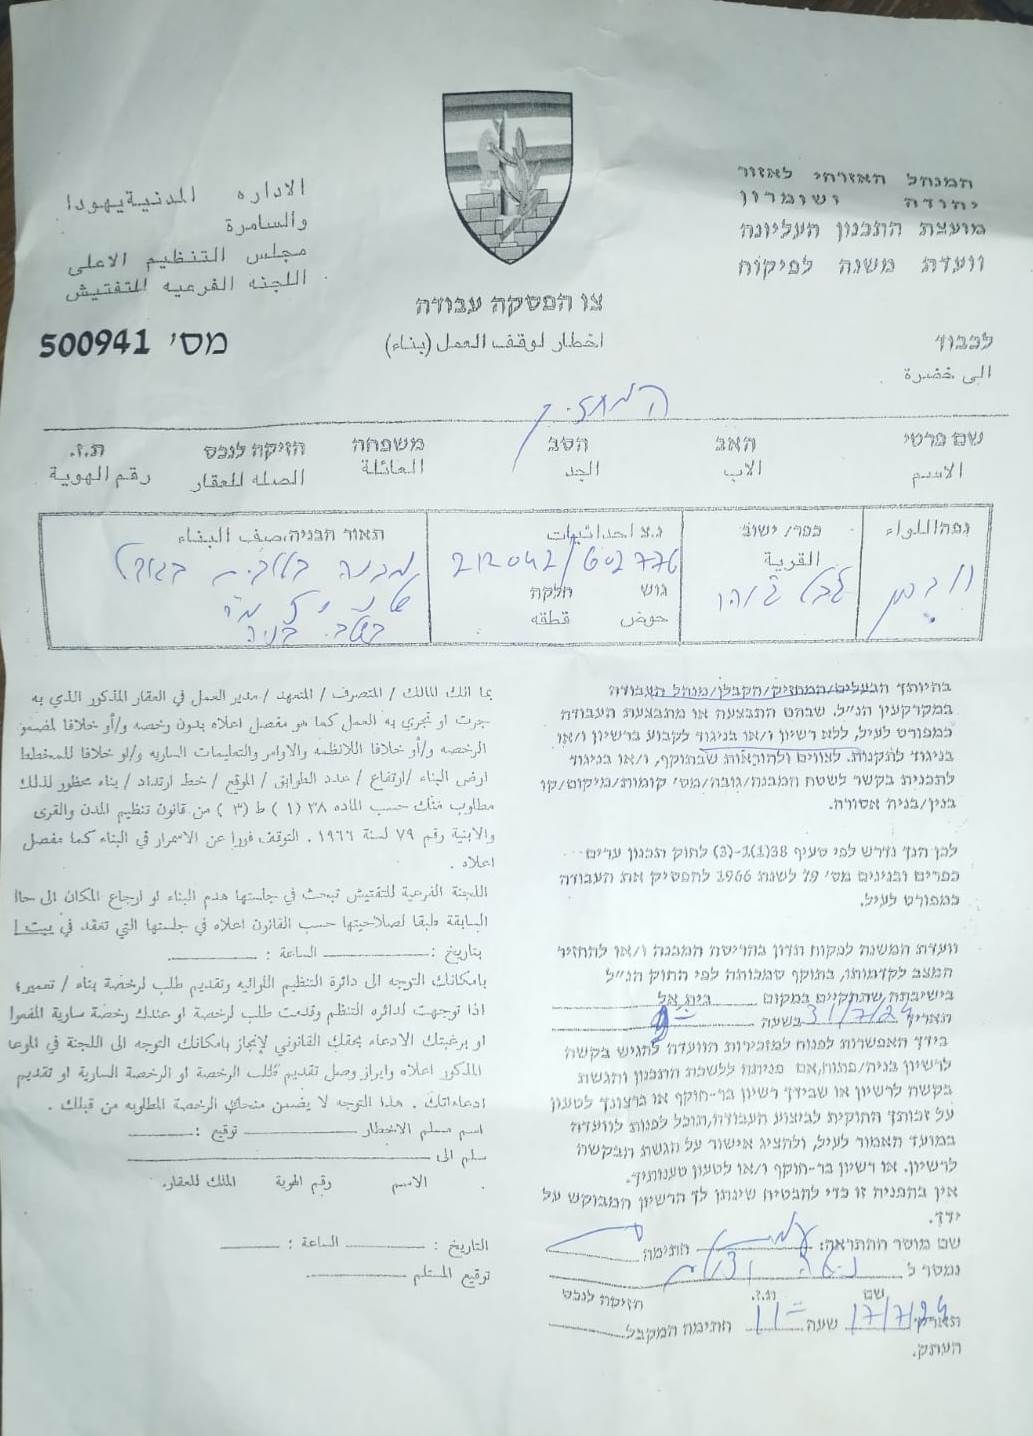 המנהל האזרחי לאזור
יהודה ושומרון
מועצת התכנון העליונה
וועדת משנה לפיקוח
الاداره المدنية يهودا
والسامرة
مجلس التنظيم الاعلى
اللجنه الفرعيه للتفتيش
צו הפסקה עבודה
اخطار لوقف العمل (بناء)
מס' 500941
לכבוד
الى حضرة
המחזיק
שם פרטי האב הסב משפחה חזיקה לנכס ת.ז.
الاسم الاب الجد العائلة الصله للعقار رقم الهوية
נפה اللواء
כפר/ ישוב
القرية
נ.צ احداثيات
212042/602776
גוש חלקה
حوض قطقه
תאור הבניה، صيف البناء
מבנה
בשלבי בניה
בהיותך הבעלים/המחזיק/הקבלן/מנהל העבודה
במקרקעין הנ"ל, שבהם התבצעה או מתבצעת העבודה
כמפורט לעיל, ללא רשיון ו/או בניגוד לקבוע ברשיון ו/או
בניגוד לתקנות, לצווים ולהוראות שבתוקף, ו/או בניגוד
לתכנית בקשר לשטח המבנה/גובה/מס' קומות/מיקום/קו
בנין/בניה אסורה.
לכן הנך נדרש לפי סעיף 38(1)ג-(3) לחוק תכנון ערים
כפרים ובנינים מס' 79 לשנת 1966 להפסיק את העבודה
כמפורט לעיל.
וועדת המשנה לפקוח תדון בהריסה המבנה ו/או להחזיר
המצב לקדמותו, בתוקף סמכותה לפי החוק הנ"ל
בישיבתה, שתתקיים במקום בית אל
תאריך 31/7/24 בשעה 9
בידך האפשרות לפנות למזכירות הוועדה להגיש בקשה
לרשיון בניה/פתוח, אם פניתה ללשכת התכנון והגשת
בקשה לרשיון או שבידך רשיון בר-תוקף או ברצונך לטעון
על זכותך החוקית לביצוע העבודה, תוכל לפנות לוועדה
במועד האמור לעיל, ולהציג אישור על הגשת הבקשה
לרשיון. או רשיון בר-תוקף ו/או לטעון טענותיך.
אין בהפניה זו כדי להבטיח שינתן לך הרשיון המבוקש על
ידך.
שם מוסר ההתראה: חתימה
נמסר ל
שם ת.ז. חזיקה לנכס
תאריך 17/7/24 שעה 11 חתימה המקבל
העתק.
بما انك المالك / المتصرف / المتعهد / مدير العمل في العقار المذكور الذي به
جرت او تجري به العمل كما هو مفصل اعلاه بدون رخصه و/أو خلافا لمضمون
الرخصه و/أو خلافا للانظمه والاوامر والتعليمات الساريه و/او خلافا للمخطط
ارض البناء /ارتفاع / عدد الطوابق / الموقع / خط ارتداد / بناء محظور لذلك
مطلوب منك حسب الماده ٣٨ ( ١ ) ط ( ٣ ) من قانون تنظيم المدن والقرى
والابنية رقم ٧٩ لسنة ١٩٦٦ . التوقف فورا عن الاسمرار في البناء كما مفصل
اعلاه .
اللجنة الفرعية للتفتيش تبحث في جلستها هدم البناء او ارجاع المكان الى حا
السابقة طبقا لصلاحيتها حسب القانون اعلاه في جلستها التي تعقد في بيت ا
بتاريخ : الساعة :
بامكانك التوجه الى دائرة التنظيم اللوائيه وتقديم طلب لرخصة بناء / تعمير؛
اذا توجهت لدائره التنظم وقدمت طلب لرخصة او عندك رخصة سارية المفعو
او برغبتك الادعاء بحقك القانوني لإنجاز بامكانك التوجه الى اللجنة في
المذكور اعلاه وابراز وصل تقديم طلب الرخصة او الرخصة السارية او تقديم
ادعاءاتك . هذا التوجه لا يضمن منحك الرخصة المطلوبه من قبلك .
اسم مسلم الاخطار توقيع :
سلم الى
الاسم رقم الهوية المالك للعقار.
التاريخ : الساعة :
توقيع المستلم